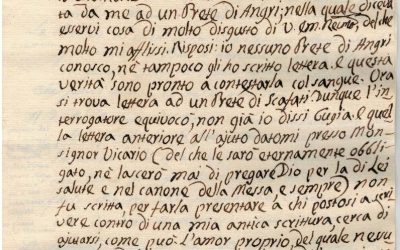 ta da me ad un Prete di Angri; nella quale diceva
esservi cosa di molto disgusto di V. Em. Reuma, del che
molto mi afflissi. Risposi: io nessuno Prete di Angri
conosco, nè tampoco gli hò scritto lettera. e questa
verità sono pronto à contestarla col sangue. Ora
si trova lettera ad un Prete di Scafati. Dunque l'in
terrogatore equivocò, non già io dissi bugia. e quel
la lettera anteriore all'ajuto datomi presso Mon
signor Vicario (del che le sarò eternamente obbli
gato, nè lascerò mai di pregare Dio per la di Lei
salute e nel canone della Messa e sempre) non
fu scritta, per farla presentare à chi postosi à scri
vere contro di una mia antica scrittura, cerca di
ajutarsi, come può. l'amor proprio, del quale nessu